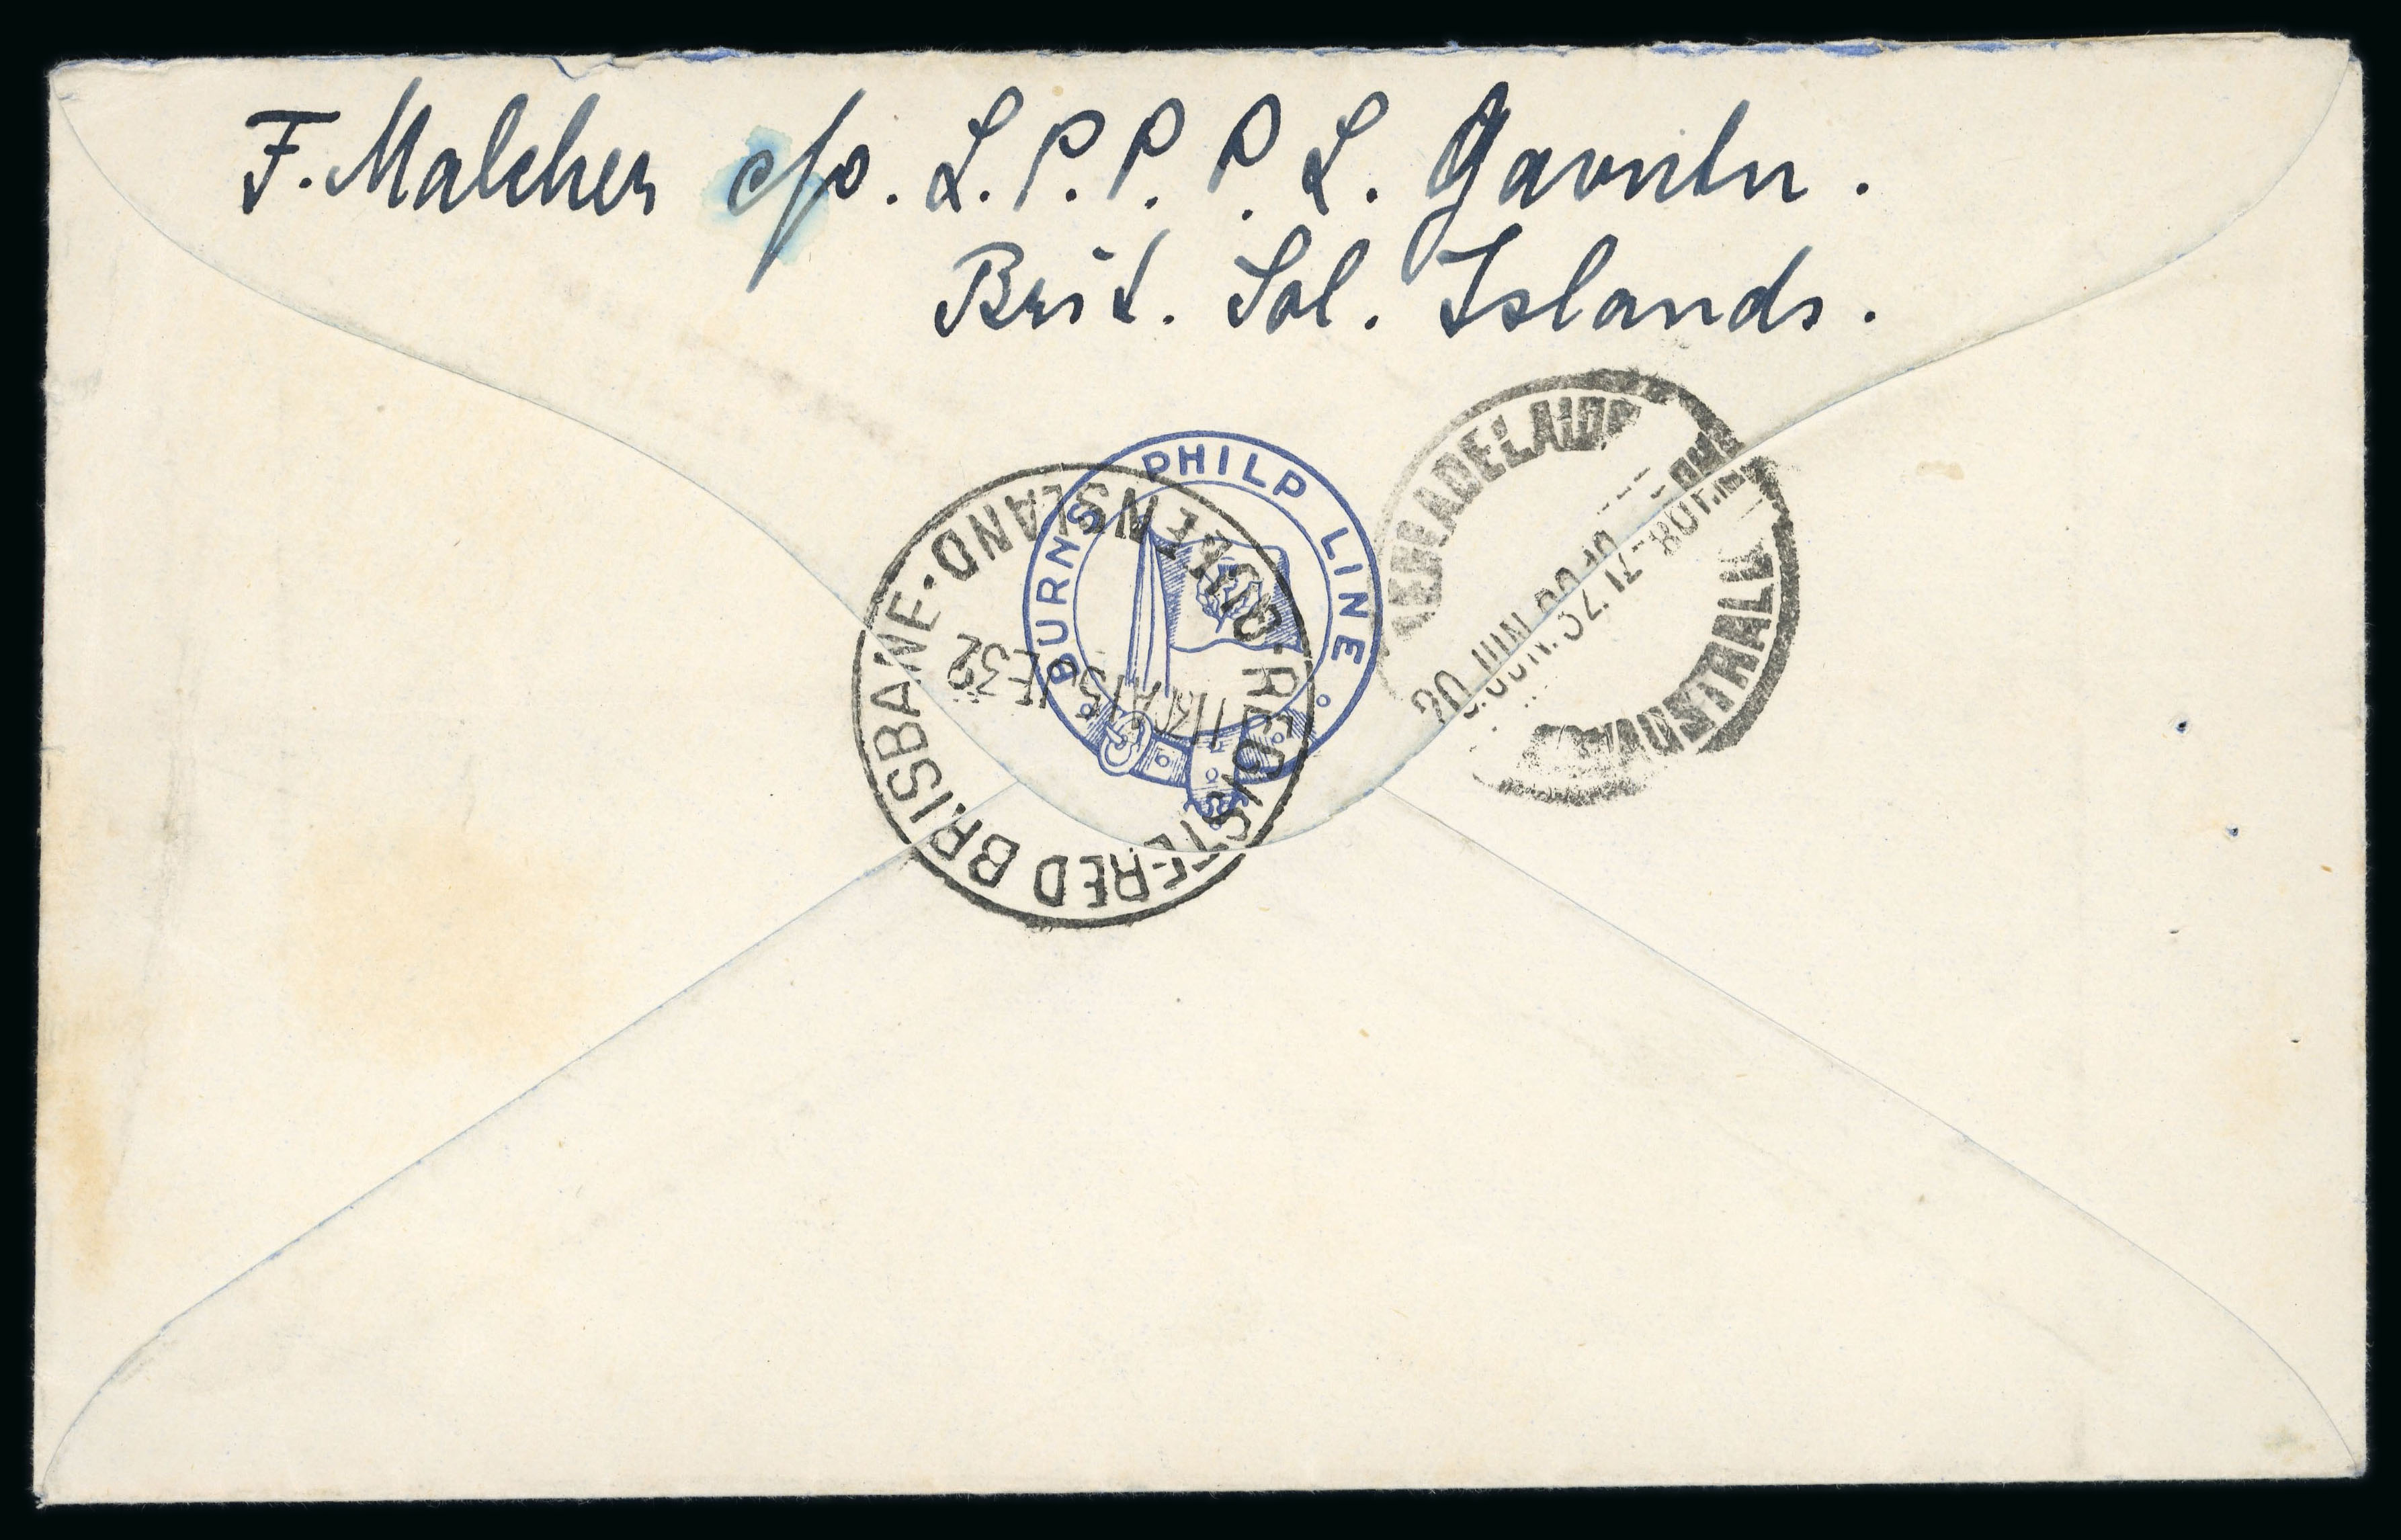 F. Malcher c/o. L. P. P. P. L. Gavutu.
Brit. Sol. Islands.
BURNS PHILP LINE
REGISTERED BRISBANE · QUEENSLAND
32
ADELAIDE
20 JUN
AUSTRALI